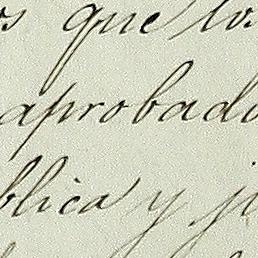 os que los
aprobado
blica y ju